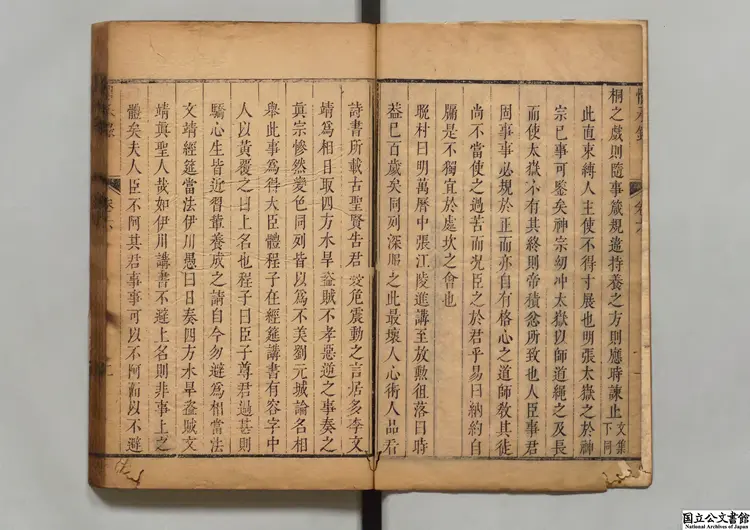 桐之戲則隨事箴規違持養之方則應時諫止文集下同
此直束縛人主使不得寸展也明張太嶽之於神
宗已事可鑒矣神宗幼冲太嶽以師道繩之及長
而使太嶽不有其終則帝積忿所致也人臣事君
固事事必規於正而亦自有格心之道師敎其徒
尚不當使之過苦而况臣之於君乎易曰納約自
牖是不獨宜於處坎之會也
晩村曰明萬曆中張江陵進講至放勲徂落曰時
葢已百歲矣同列深服之此最壞人心術人品看
詩書所載古聖賢告君危震動之言居多李文
靖爲相日取四方水旱盜賊不孝惡逆之事奏之
眞宗慘然變色同列皆以爲不美劉元城論名相
舉此事爲得大臣體程子在經筵講書有容字中
人以黃覆之曰上名也程子曰臣子尊君過甚則
驕心生皆近習軰養成之請自今勿避爲相當法
文靖經筵當法伊川愚曰日奏四方水旱盜賊文
靖眞聖人哉如伊川講書不避上名則非事上之
體矣夫人臣不阿其君事事可以不阿而以不避
国立公文書館
National Archives of Japan